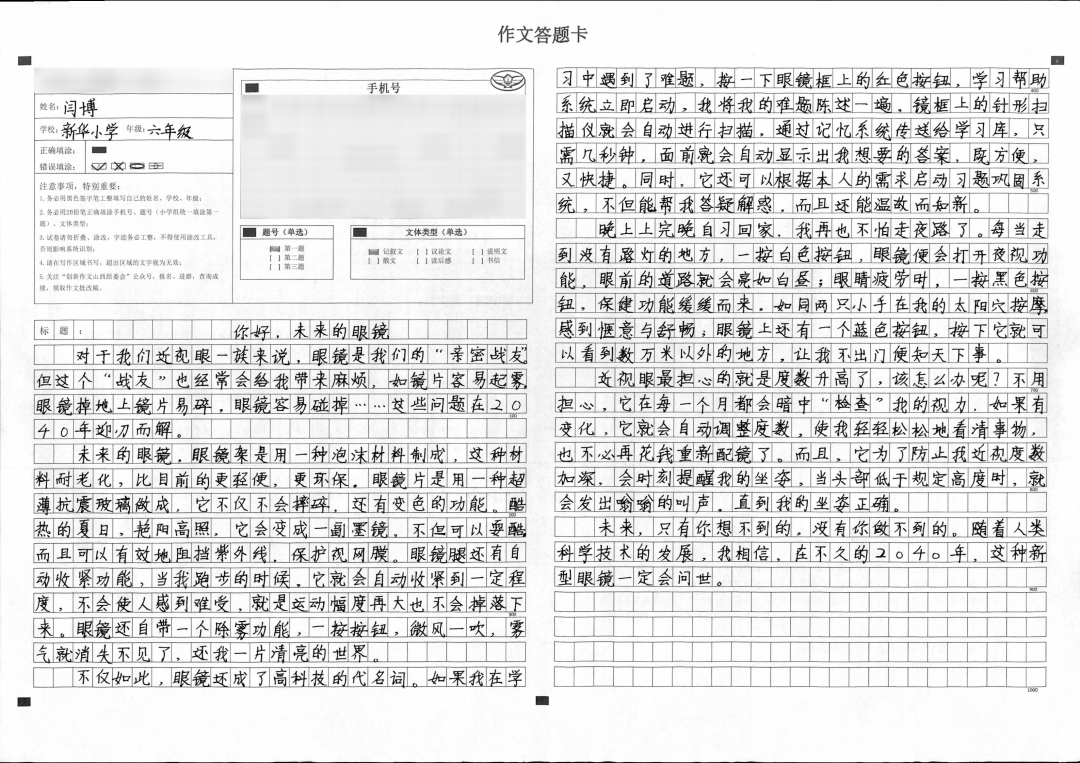 作文答题卡
姓名：闫博
学校：新华小学 年级：六年级
正确填涂：
错误填涂：
注意事项，特别重要：
1. 务必用黑色签字笔工整填写自己的姓名，学校，年级；
2. 务必用2B铅笔正确填涂手机号，题号（小学组统一填涂第一
题），文体类型；
3. 试卷请勿折叠、涂改，字迹务必工整，不得使用涂改工具，
否则影响系统识别；
4. 请在写作区域书写，超出区域的文字视为无效；
5. 关注“创新作文山西组委会”公众号，报名，进群，查询成
绩，领取作文批改稿。
手机号
题号（单选）
第一题
[ ] 第二题
[ ] 第三题
文体类型（单选）
记叙文 [ ] 议论文 [ ] 说明文
[ ] 散文 [ ] 读后感 [ ] 书信
标题： 你好，未来的眼镜
对于我们近视眼一族来说，眼镜是我们的“亲密战友”
但这个“战友”也经常会给我带来麻烦，如镜片容易起雾，
眼镜掉地上镜片易碎，眼镜容易碰掉……这些问题在20
100
40年迎刃而解。
未来的眼镜，眼镜架是用一种泡沫材料制成，这种材
料耐老化，比目前的更轻便，更环保。眼镜片是用一种超
薄抗震玻璃做成，它不仅不会摔碎，还有变色的功能。酷
200
热的夏日，艳阳高照，它会变成一副墨镜，不但可以耍酷
而且可以有效地阻挡紫外线，保护视网膜。眼镜腿还有自
动收紧功能，当我跑步的时候，它就会自动收紧到一定程
度，不会使人感到难受，就是运动幅度再大也不会掉落下
300
来。眼镜还自带一个除雾功能，一按按钮，微风一吹，雾
气就消失不见了，还我一片清亮的世界。
不仅如此，眼镜还成了高科技的代名词。如果我在学
习中遇到了难题，按一下眼镜框上的红色按钮，学习帮助
400
系统立即启动，我将我的难题陈述一遍，镜框上的针形扫
描仪就会自动进行扫描，通过记忆系统传送给学习库，只
需几秒钟，面前就会自动显示出我想要的答案，既方便，
又快捷。同时，它还可以根据本人的需求启动习题巩固系
500
统，不但能帮我答疑解惑，而且还能温故而知新。
晚上上完晚自习回家，我再也不怕走夜路了。每当走
到没有路灯的地方，一按白色按钮，眼镜便会打开夜视功
能，眼前的道路就会亮如白昼；眼睛疲劳时，一按黑色按
600
钮，保健功能缓缓而来，如同两只小手在我的太阳穴按摩，
感到惬意与舒畅；眼镜上还有一个蓝色按钮，按下它就可
以看到数万米以外的地方，让我不出门便知天下事。
近视眼最担心的就是度数升高了，该怎么办呢？不用
700
担心，它在每一个月都会暗中“检查”我的视力，如果有
变化，它就会自动调整度数，使我轻轻松松地看清事物，
也不必再花钱重新配镜了。而且，它为了防止我近视度数
加深，会时刻提醒我的坐姿，当头部低于规定高度时，就
800
会发出嗡嗡的叫声，直到我的坐姿正确。
未来，只有你想不到的，没有你做不到的。随着人类
科学技术的发展，我相信，在不久的2040年，这种新
型眼镜一定会问世。
900
1000